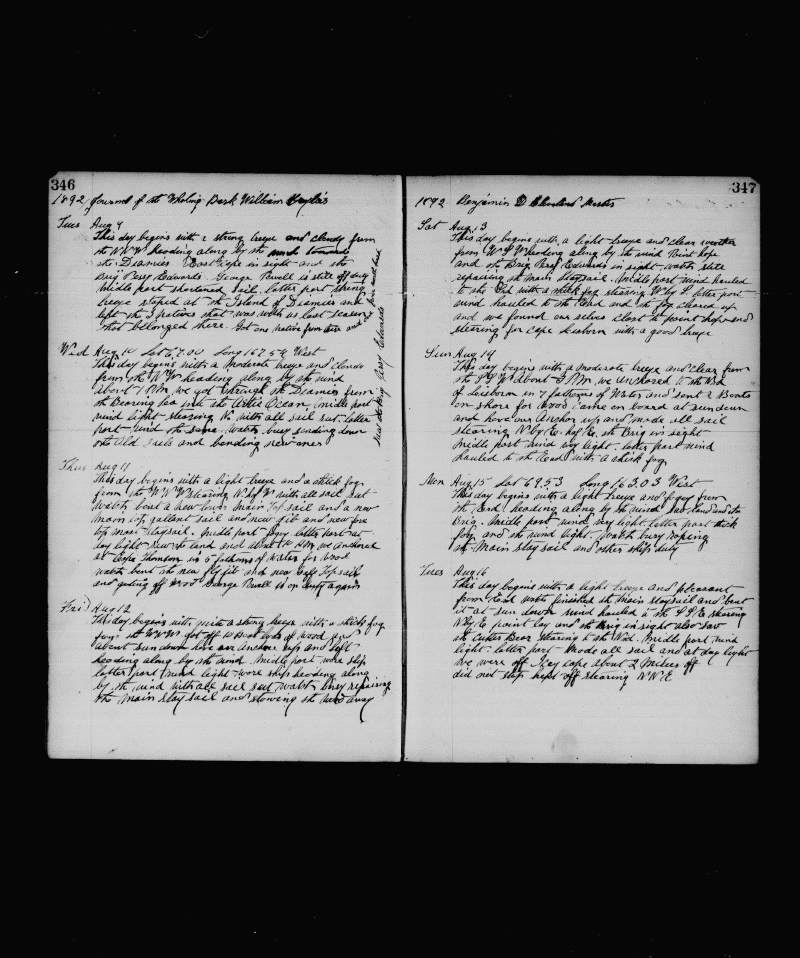 346
1892 Journal of the Whaling Bark William Baylis
Tues Aug 9
This day begins with a strong breeze and cloudy from
the N.N.W heading along by the wind towards
the Diamies East Cape in sight and the
Brig Percy Edwards. George Ruell is still off duty
Middle part shortened sail. latter part strong
breeze stoped at the Island of Diamies and
left the 3 natives that was with us last season
that belonged there. Got one native from here and
Wed Aug 10 Lat 67.00 Long 167.54 West
This day begins with a moderate breeze and cloudy
from the NW heading along by the wind
about 1 PM we got through the Diamies from
the Bearing sea into the Artic Ocean, middle part
wind light stearing N. with all sail set. latter
part wind the same. Watch busy sending down
the Old sails and bending new ones
Thur Aug 11
This day begins with a light breeze and a thick fog
from the W.N.W stearing N by W with all sail set
Watch bent a new lower main Top sail and a new
main top gallant sail and new jib and new fore
top mast staysail. Middle part foggy latter part at
day light saw the land and about 10 AM we anchored
at Cape Thomson in 5 fathoms of water for wood
watch bent the new fly jib and new Top sail
and geting off wood George Ruell is on duty again
Frid Aug 12
This day begins with a strong breeze with a thick fog
from the W.N.W. got off 10 boat loads of wood and
about sun down hove our anchore up and left
heading along by the wind. Middle part wore ship
latter part wind light wore ship heading along
by the wind with all sail set watch busy repairing
the main stay sail and stowing the wood away
347
1892 Benjamin D Cleveland Master
Sat Aug 13
This day begins with a light breeze and clear weather
from W.S.W heading along by the wind Point hope
and the Brig Percy Edwards in sight. watch still
repairing the main staysail. Middle part wind hauled
to the Sd with a thick fog stearing W by S latter part
wind hauled to the East and the fog cleared up
and we found our selves close to point hope and
stearing for Cape Lisborn with a good breeze
Sun Aug 14
This day begins with a moderate breeze and clear from
the S.S.W About 3 PM we anchored to the Nd
of Lisborn in 7 fathoms of Water and sent 2 Boats
on shore for Wood. Came on board at sundown
and hove our Anchor up and made all sail
stearing N by E. half E. the Brig in sight
Middle part wind very light. latter part wind
hauled to the East with a thick fog
Mon Aug 15 Lat 69.53 Long 163.03 West
This day begins with a light breeze and foggy from
the East heading along by the wind saw land and the
Brig. Middle part wind very light latter part thick
fog and the wind light. Watch busy roping
the Main stay sail and other ships duty
Tues Aug 16
This day begins with a light breeze and pleasant
from East watch finished the main staysail and bent
it at sun down wind hauled to the S.S.E stearing
N by E point lay and the Brig in sight also saw
the Cutter Bear stearing to the Wd. Middle part wind
light. latter part made all sail and at day light
we were off Icy cape about 2 Miles off
did not stop kept off stearing N N E